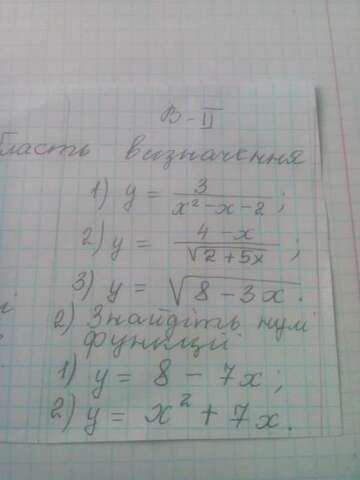 В-II
бласть визначення
1) y = 3/(x²-x-2);
2) y = (4-x)/√(2+5x);
3) y = √(8-3x).
2) Знайдіть нулі
функції
1) y = 8 - 7x;
2) y = x² + 7x.